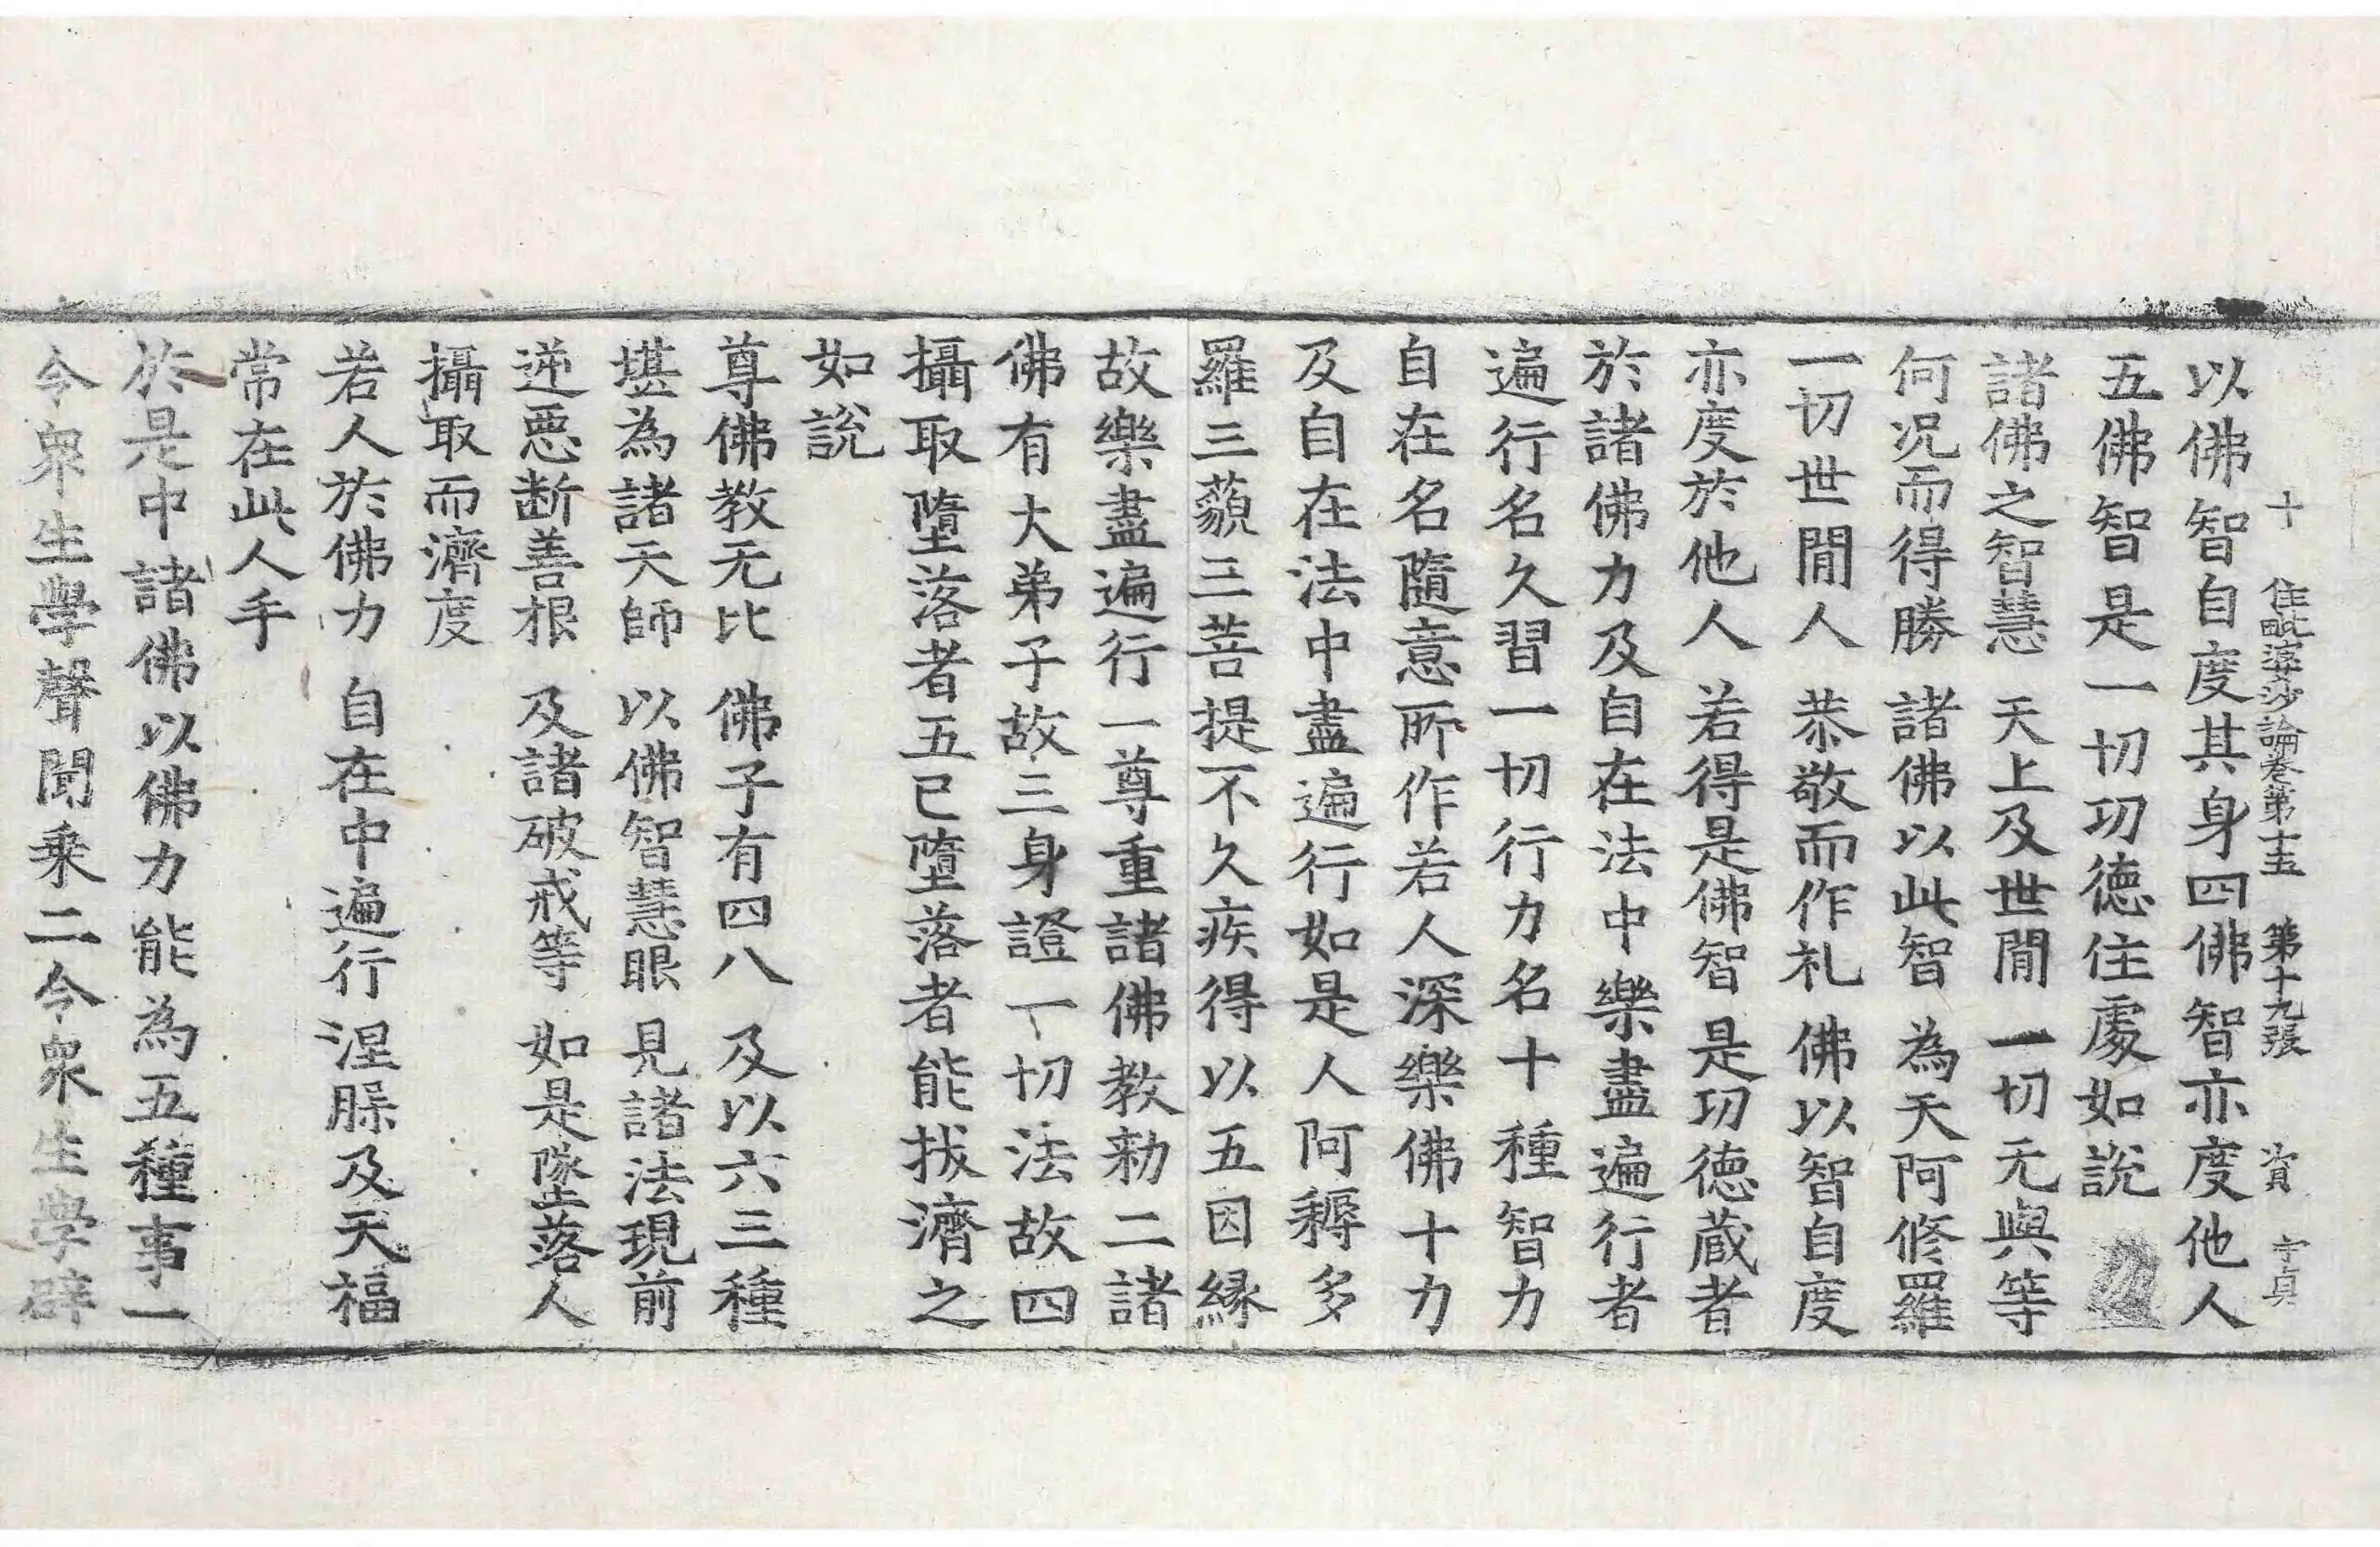 十住毗婆沙論卷第十五　第十九張　資　字貞
以佛智自度其身四佛智亦度他人
五佛智是一切功德住處如說
諸佛之智慧　天上及世閒　一切无與等
何況而得勝　諸佛以此智　為天阿修羅
一切世閒人　恭敬而作礼　佛以智自度
亦度於他人　若得是佛智　是功德藏者
於諸佛力及自在法中樂盡遍行者
遍行名久習一切行力名十種智力
自在名隨意所作若人深樂佛十力
及自在法中盡遍行如是人阿耨多
羅三藐三菩提不久疾得以五因緣
故樂盡遍行一尊重諸佛教勑二諸
佛有大弟子故三身證一切法故四
攝取墮落者五已墮落者能拔濟之
如說
尊佛教无比　佛子有四八　及以六三種
堪為諸天師　以佛智慧眼　見諸法現前
逆惡断善根　及諸破戒等　如是墜落人
攝取而濟度
若人於佛力　自在中遍行　涅槃及天福
常在此人手
於是中諸佛以佛力能為五種事一
今衆生學聲聞乘二今衆生學辟